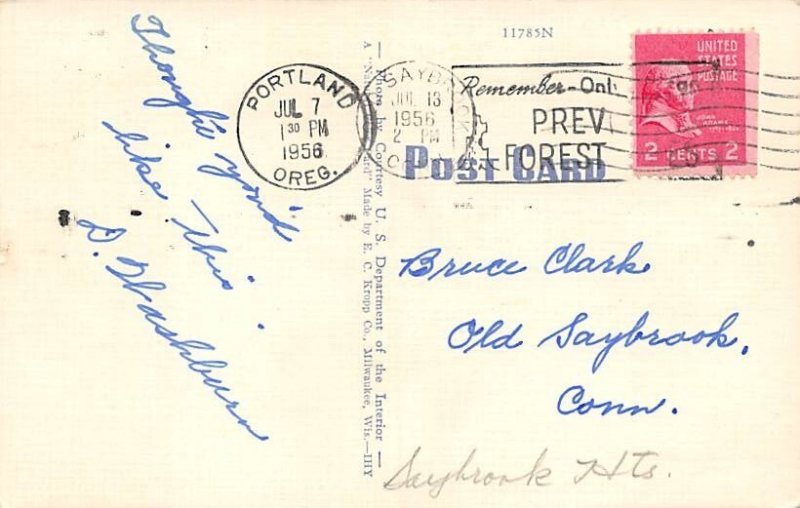 11785N
UNITED
STATES
POSTAGE
JOHN
ADAMS
2 CENTS 2
PORTLAND
JUL 7
1 30 PM
1956
OREG.
SAYBROOK
JUL 13
1956
2 PM
Remember-Onl
PREV
FOREST
POST CARD
Thought you'd
like this.
D. Washburn
— Photo by Courtesy U. S. Department of the Interior —
A "Natural Card" Made by E. C. Kropp Co., Milwaukee, Wis.—HY
Bruce Clark
Old Saybrook,
Conn.
Saybrook Hts.